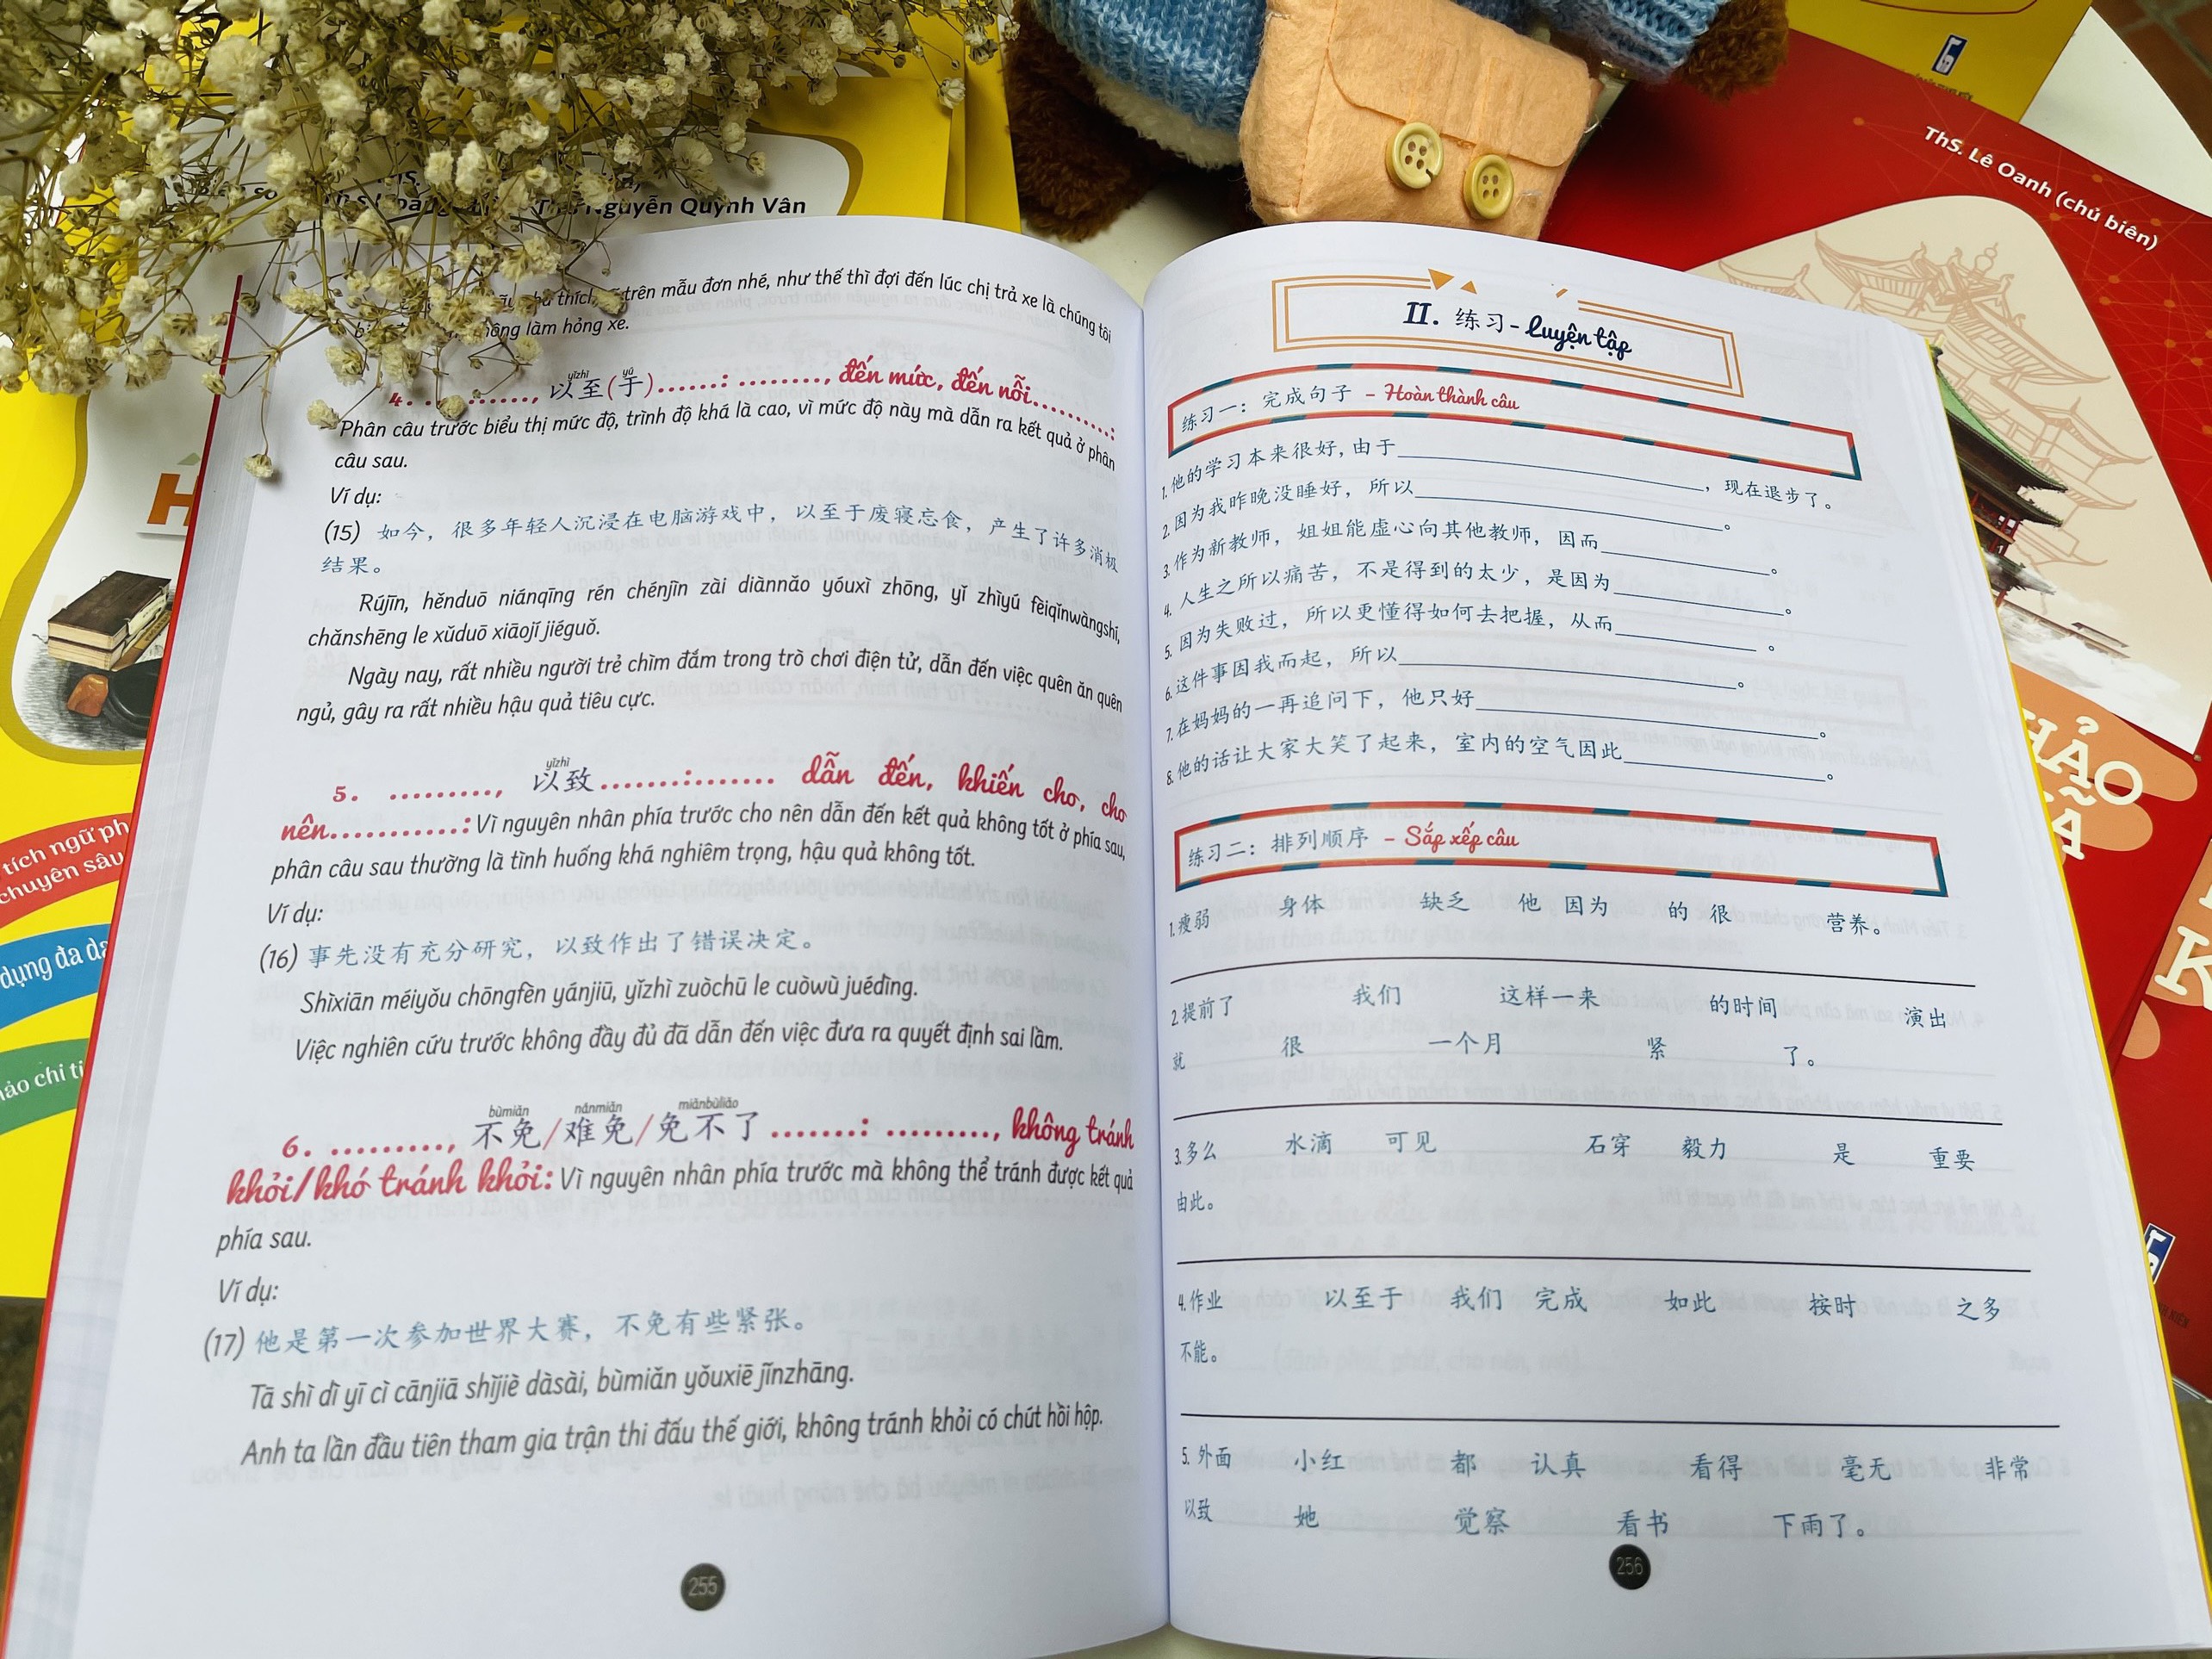 Nguyễn Quỳnh Vân
ThS. Lê Oanh (chủ biên)
trên mẫu đơn nhé, như thế thì đợi đến lúc chị trả xe là chúng tôi
không làm hỏng xe.
yǐzhì yú
4. ........, 以至(于).......: ........, đến mức, đến nỗi.........:
Phân câu trước biểu thị mức độ, trình độ khá là cao, vì mức độ này mà dẫn ra kết quả ở phân
câu sau.
Ví dụ:
(15) 如今，很多年轻人沉浸在电脑游戏中，以至于废寝忘食，产生了许多消极
结果。
Rújīn, hěnduō niánqīng rén chénjìn zài diànnǎo yóuxì zhōng, yǐ zhìyú fèiqǐnwàngshí,
chǎnshēng le xǔduō xiāojí jiéguǒ.
Ngày nay, rất nhiều người trẻ chìm đắm trong trò chơi điện tử, dẫn đến việc quên ăn quên
ngủ, gây ra rất nhiều hậu quả tiêu cực.
yǐzhì
5. .........., 以致.......:....... dẫn đến, khiến cho, cho
nên............: Vì nguyên nhân phía trước cho nên dẫn đến kết quả không tốt ở phía sau,
phân câu sau thường là tình huống khá nghiêm trọng, hậu quả không tốt.
Ví dụ:
(16) 事先没有充分研究，以致作出了错误决定。
Shìxiān méiyǒu chōngfèn yánjiū, yǐzhì zuòchū le cuòwù juédìng.
Việc nghiên cứu trước không đầy đủ đã dẫn đến việc đưa ra quyết định sai lầm.
bùmiǎn nánmiǎn miǎnbùliǎo
6. .........., 不免/难免/免不了.......: ........., không tránh
khỏi/khó tránh khỏi: Vì nguyên nhân phía trước mà không thể tránh được kết quả
phía sau.
Ví dụ:
(17) 他是第一次参加世界大赛，不免有些紧张。
Tā shì dì yī cì cānjiā shìjiè dàsài, bùmiǎn yǒuxiē jǐnzhāng.
Anh ta lần đầu tiên tham gia trận thi đấu thế giới, không tránh khỏi có chút hồi hộp.
255
II. 练习 - luyện tập
练习一：完成句子 - Hoàn thành câu
1. 他的学习本来很好，由于____________________，现在退步了。
2. 因为我昨晚没睡好，所以____________________。
3. 作为新教师，姐姐能虚心向其他教师，因而____________。
4. 人生之所以痛苦，不是得到的太少，是因为____________。
5. 因为失败过，所以更懂得如何去把握，从而____________。
6. 这件事因我而起，所以____________________。
7. 在妈妈的一再追问下，他只好____________________。
8. 他的话让大家大笑了起来，室内的空气因此____________。
练习二：排列顺序 - Sắp xếp câu
1. 瘦弱 身体 缺乏 他 因为 的 很 营养。
2. 提前了 我们 这样一来 的时间 演出
就 很 一个月 紧 了。
3. 多么 水滴 可见 石穿 毅力 是 重要
由此。
4. 作业 以至于 我们 完成 如此 按时 之多
不能。
5. 外面 小红 都 认真 看得 毫无 非常
以致 她 觉察 看书 下雨了。
256